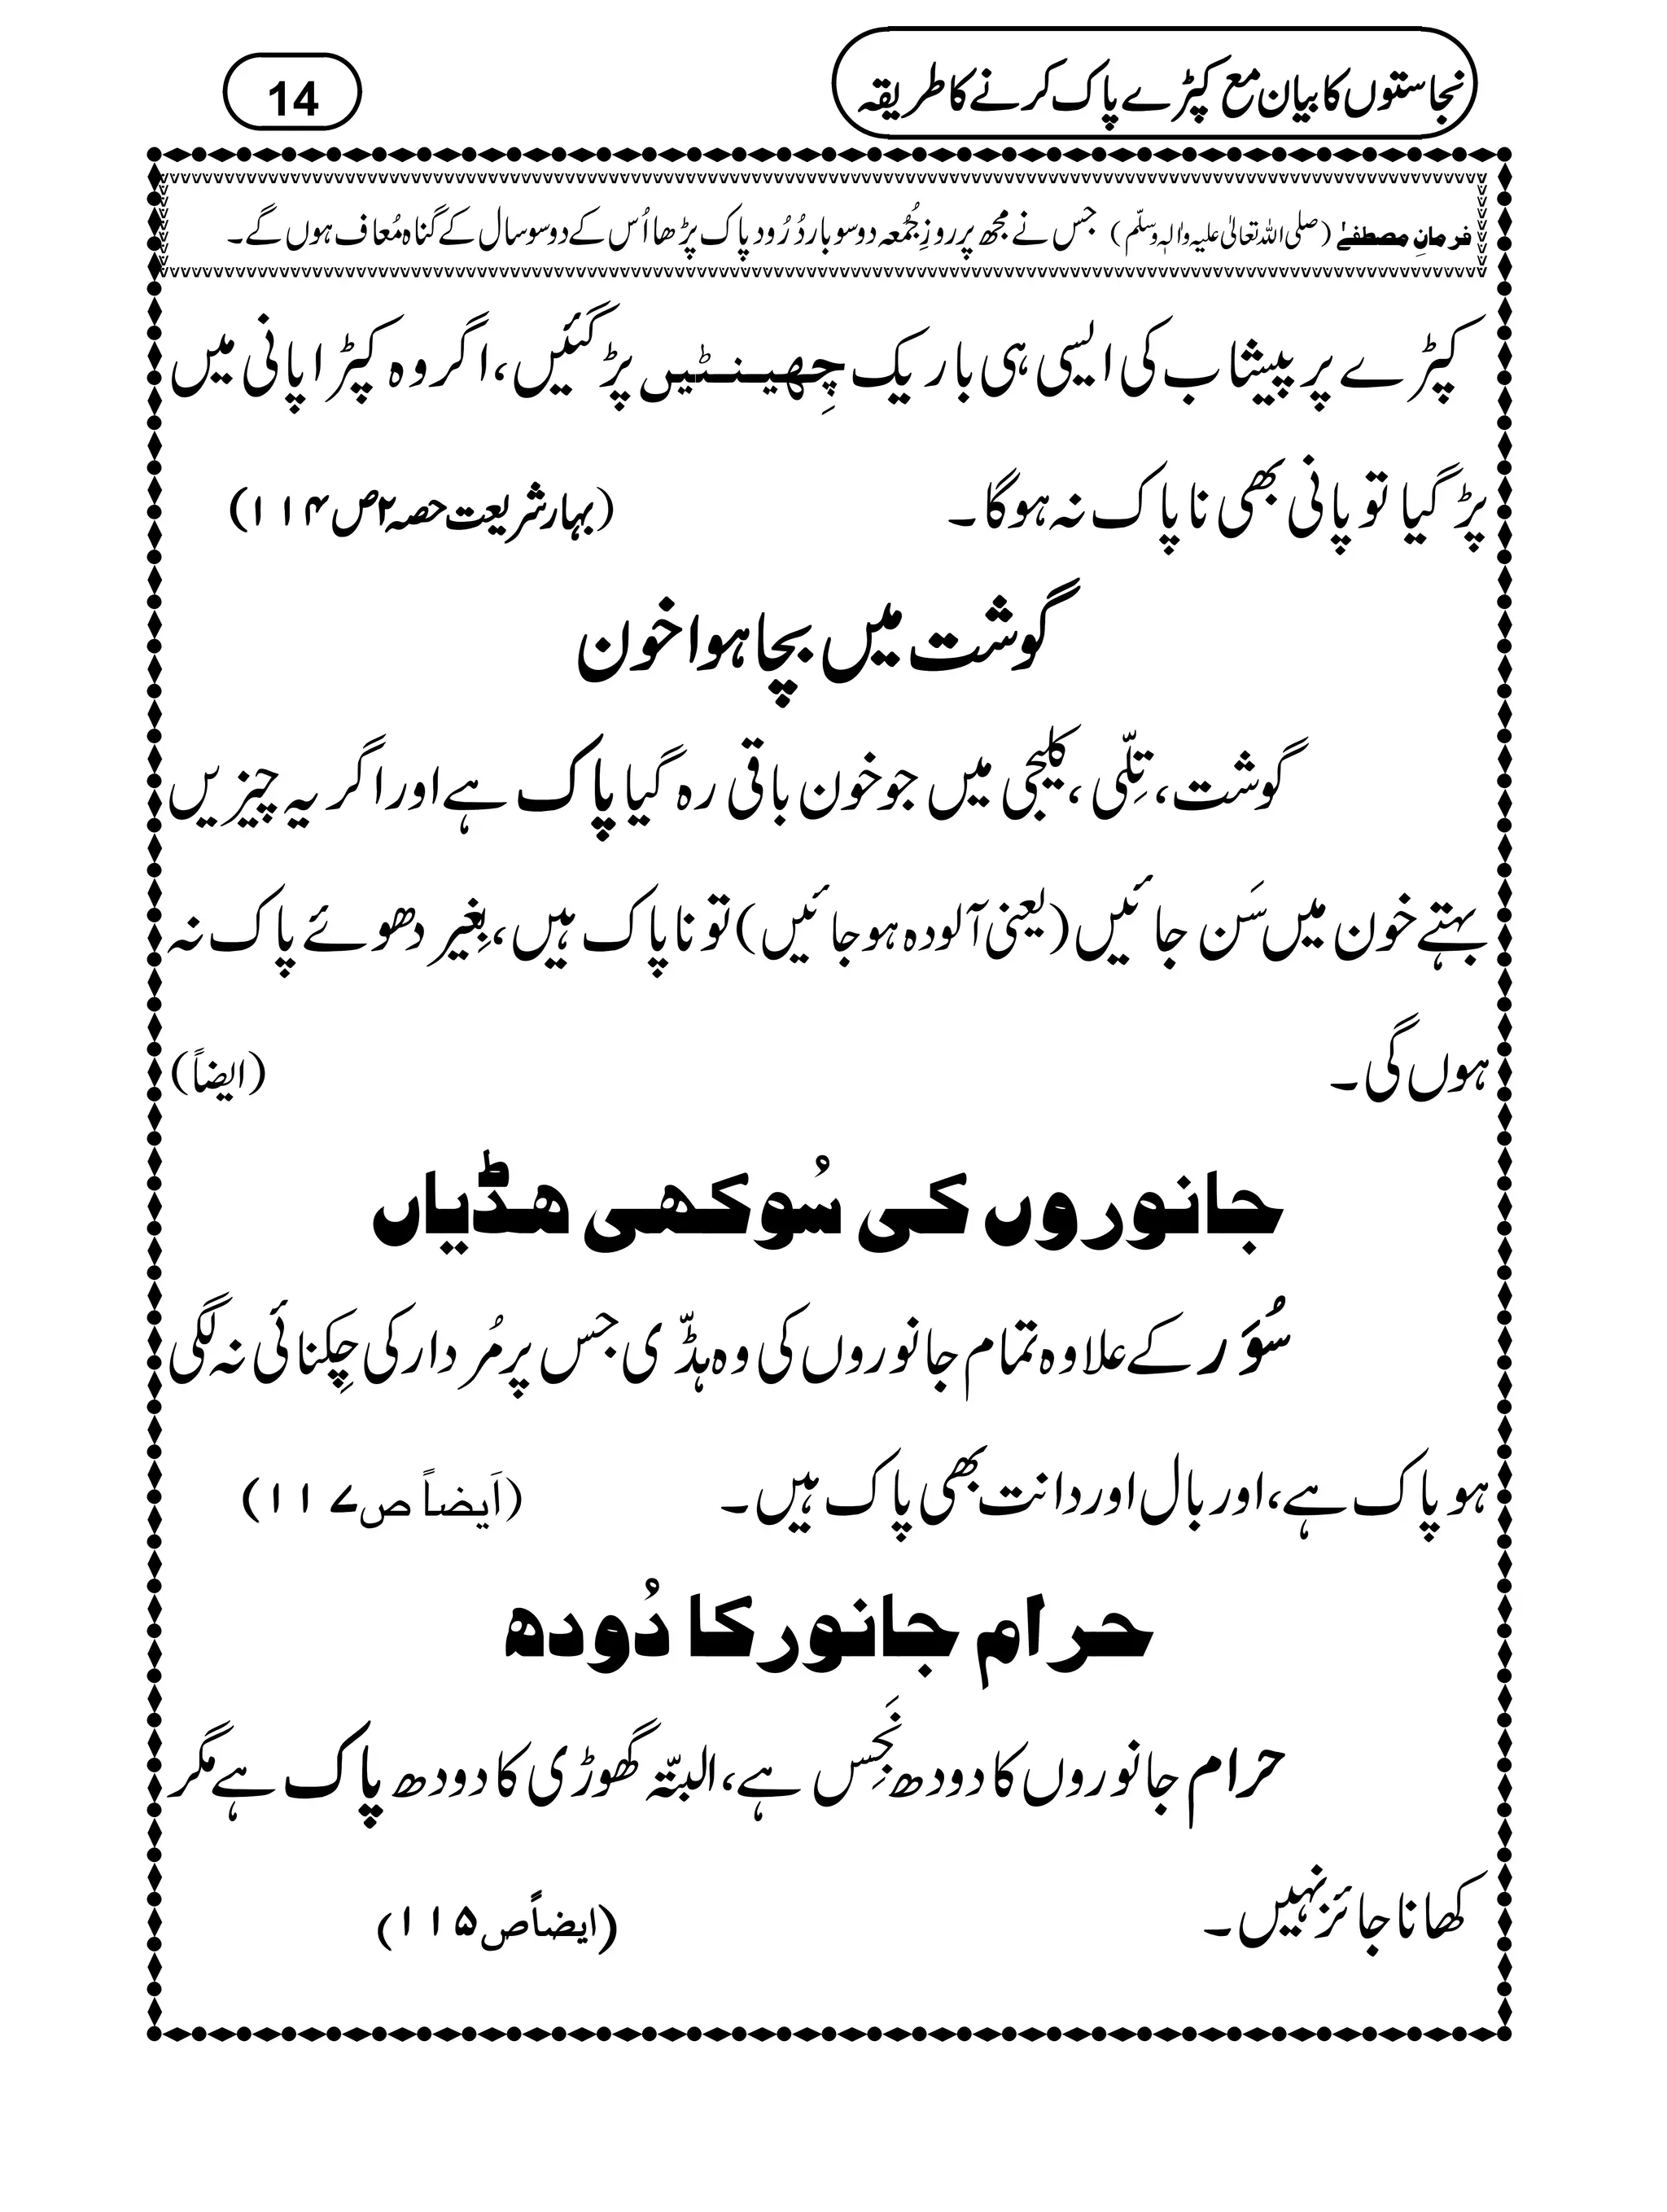 نجاستوں کا بیان مع کپڑے پاک کرنے کا طریقہ
14
فرمانِ مصطفےٰ (صلی اللہ تعالیٰ علیہ والہٖ وسلّم) جس نے مجھ پر روزِ جُمُعہ دو سو بار دُرُود پاک پڑھا اُس کے دو سو سال کے گناہ مُعاف ہوں گے۔
کپڑے پر پیشاب کی ایسی ہی باریک چِھینٹیں پڑ گئیں، اگر وہ کپڑا پانی میں
پڑ گیا تو پانی بھی ناپاک نہ ہوگا۔ (بہار شریعت حصہ ۲ ص ۱۱۴)
گوشت میں بچا ہوا خون
گوشت، تِلّی، کلیجی میں جو خون باقی رہ گیا پاک ہے اور اگر یہ چیزیں
بہتے خون میں سَن جائیں (یعنی آلودہ ہو جائیں) تو ناپاک ہیں، بِغیر دھوئے پاک نہ
ہوں گی۔ (ایضاً)
جانوروں کی سُوکھی ھڈیاں
سُوَر کے علاوہ تمام جانوروں کی وہ ہڈّی جس پر مُردار کی چِکنائی نہ لگی
ہو پاک ہے، اور بال اور دانت بھی پاک ہیں۔ (اَیضاً ص ۱۱۷)
حرام جانور کا دُودھ
حرام جانوروں کا دودھ نَجِس ہے، البتّہ گھوڑی کا دودھ پاک ہے مگر
کھانا جائز نہیں۔ (ایضاً ص ۱۱۵)